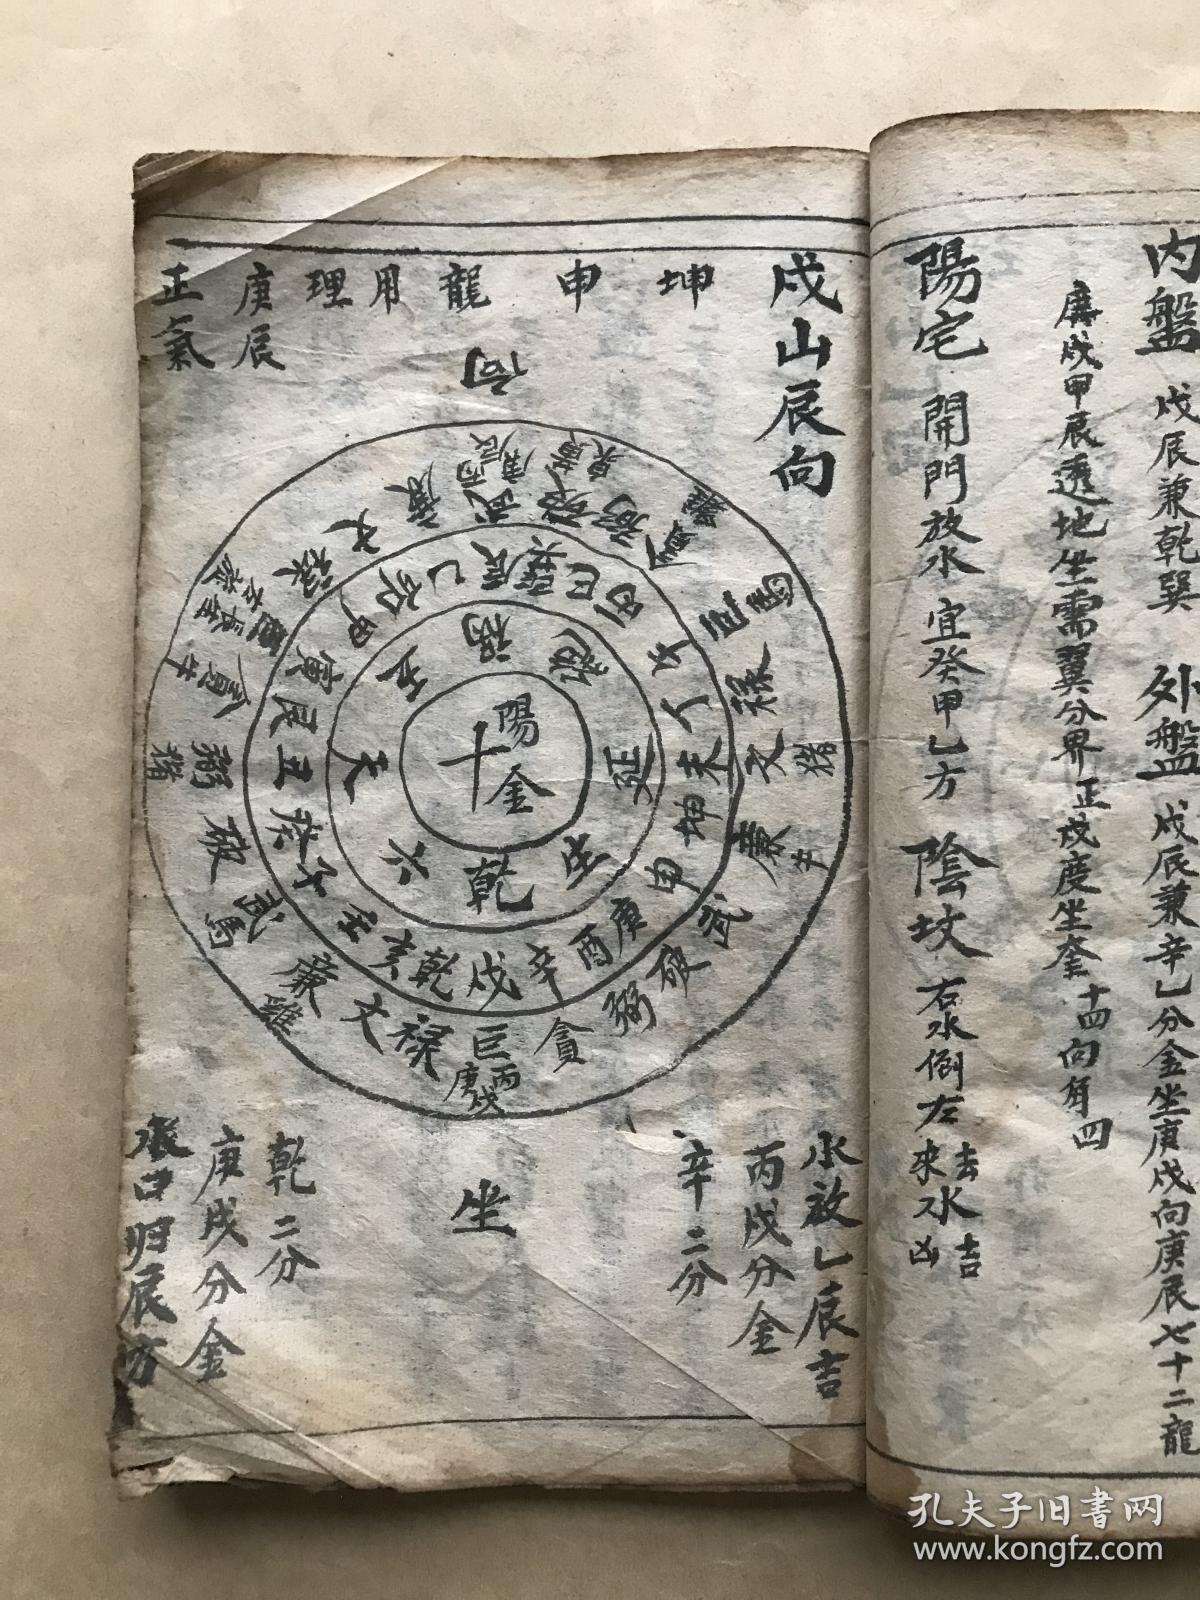 内盤 戊辰兼乾巽 外盤 戊辰兼辛乙分金坐庚戌向庚辰七十二龍
庚戌甲辰透地坐需翼分界正戌度坐奎十四向角四
陽宅 開門放水宜癸甲乙方 陰坟 右水倒左 去水吉 来水凶
戌山辰向
坤
申
龍
用
理
庚辰
正氣
向
陽金
十
乾
生
延
絕
禍
五
天
六
戌
辛
酉
庚
申
坤
未
丁
午
丙
巳
巽
辰
乙
卯
甲
寅
艮
丑
癸
子
壬
亥
乾
巨
丙戌
庚戌
貪
弼
破
武
廉
文
猪
祿
巨
馬
文
祿
廉
雞
武馬
破
弼
猪
坐
水放乙辰吉
丙戌分金
辛二分
乾二分
庚戌分金
水口归辰方
孔夫子旧书网
www.kongfz.com